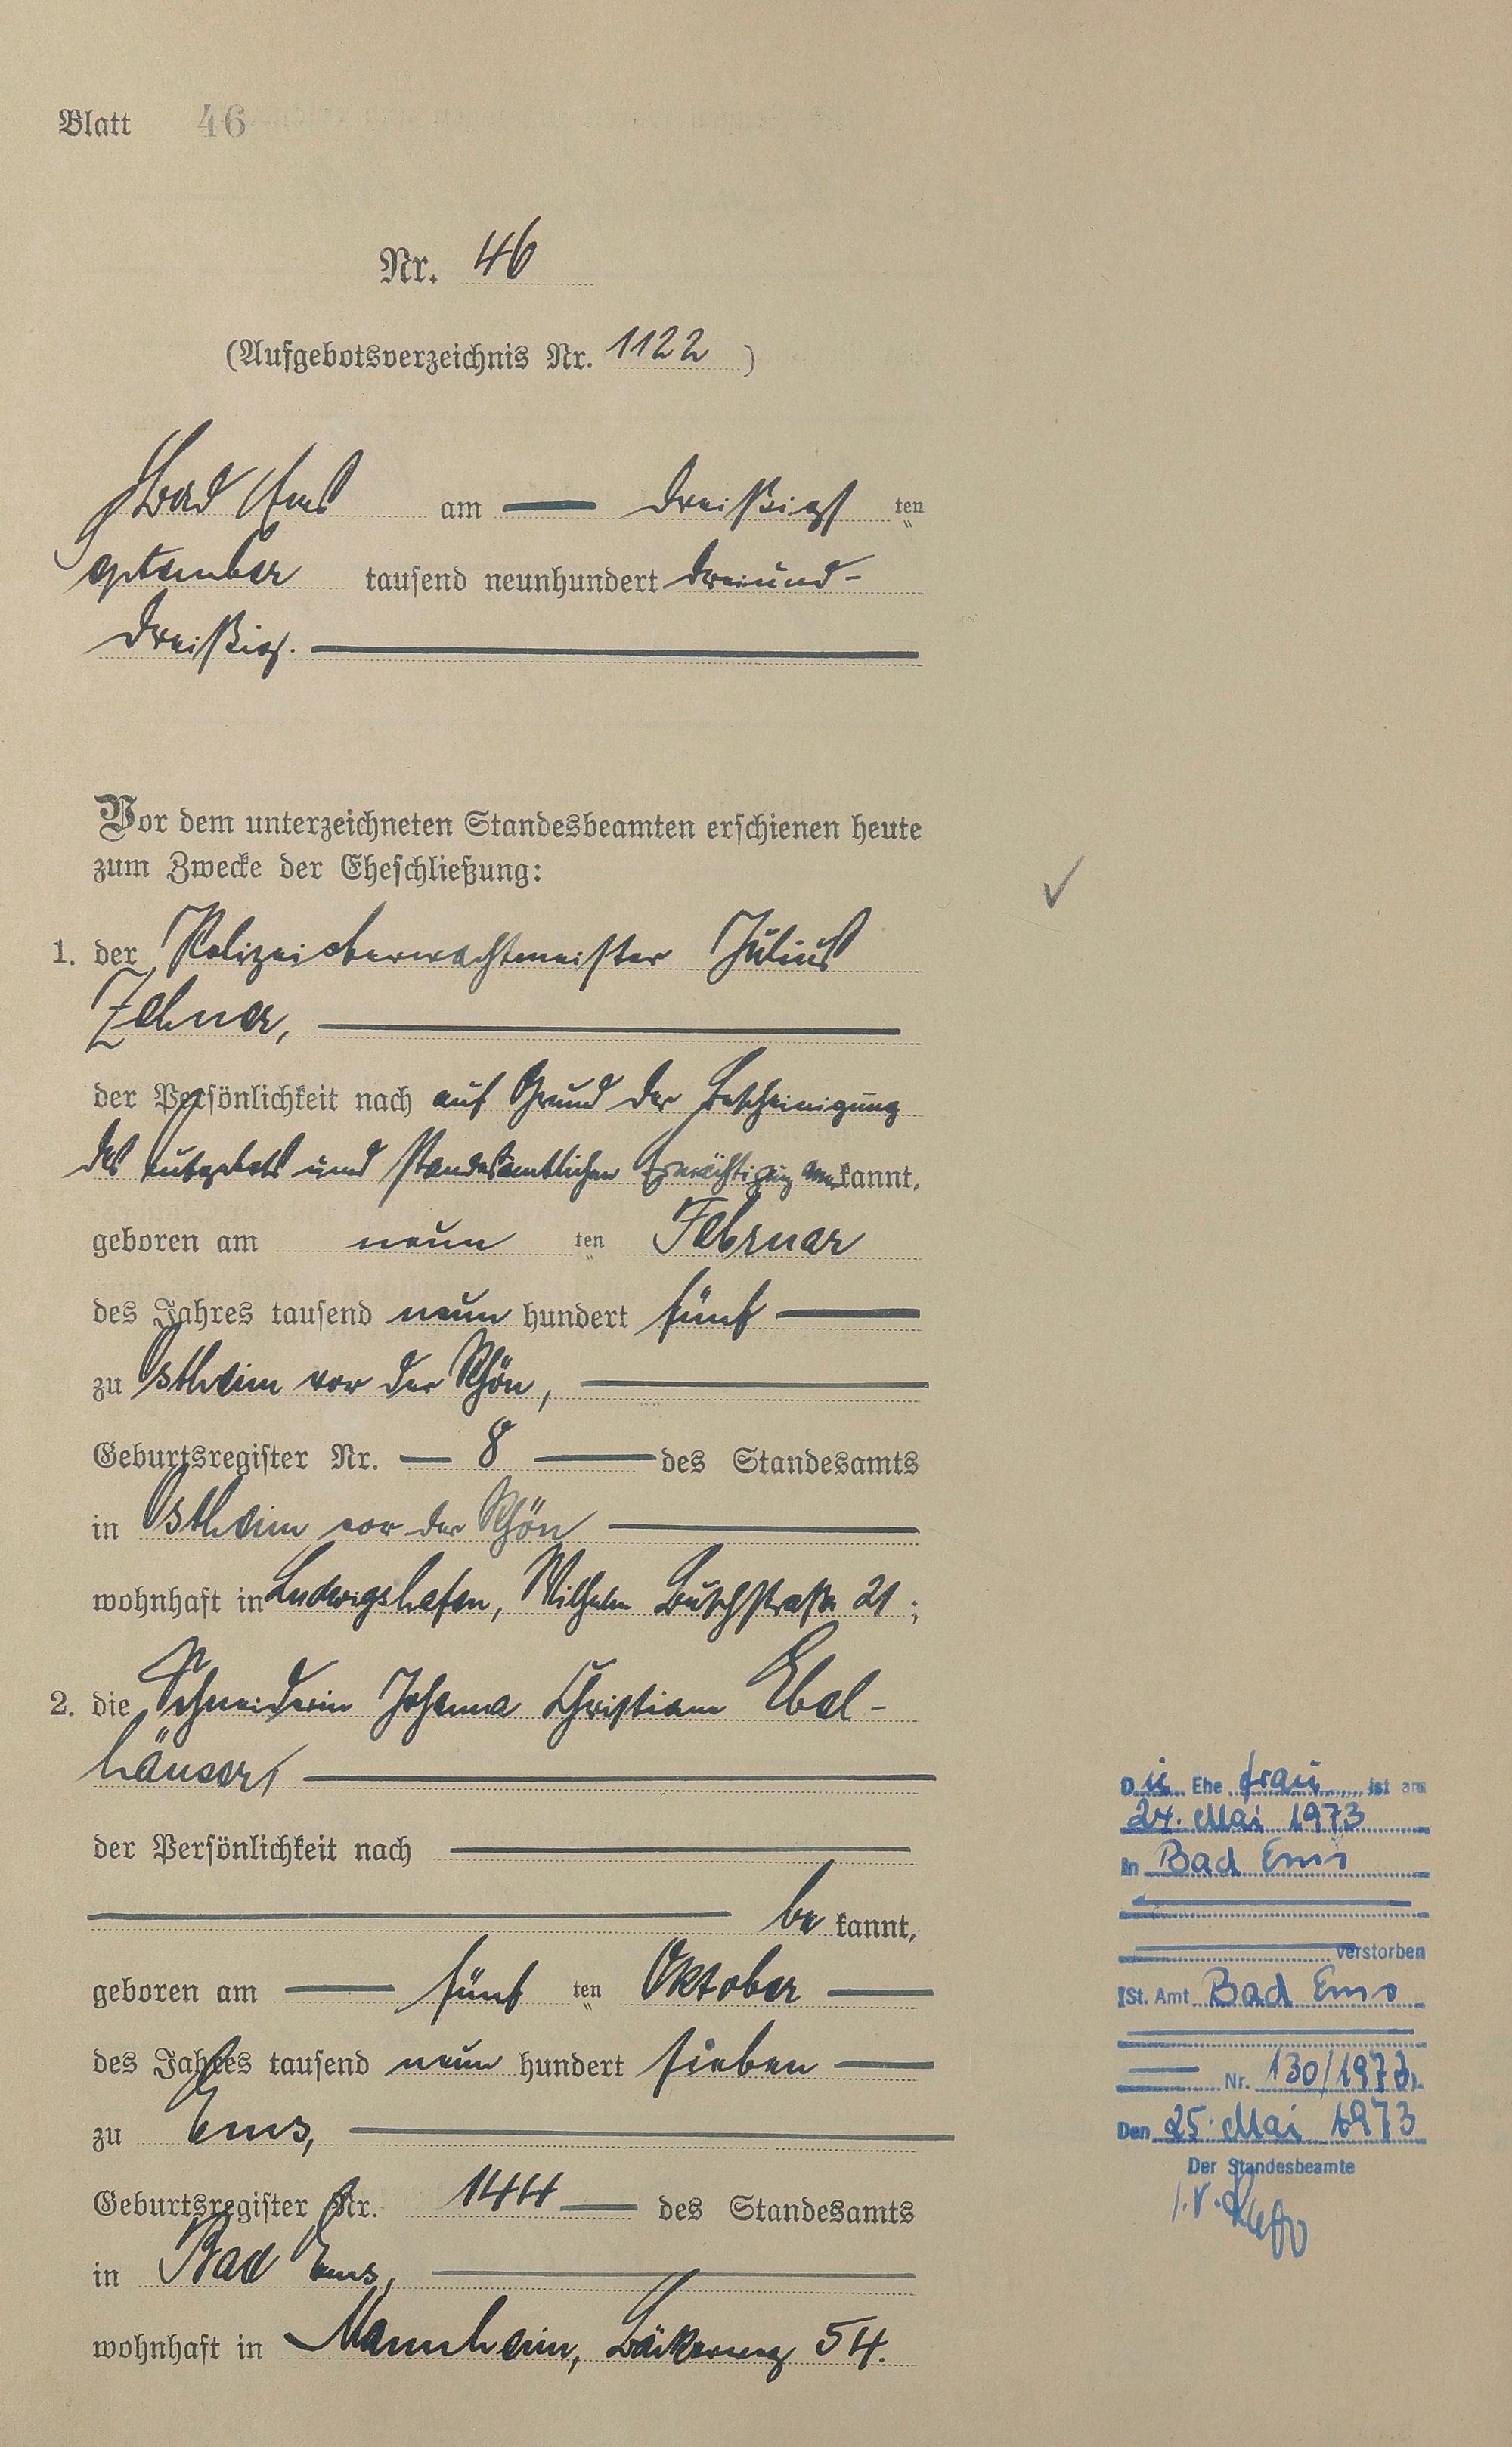 Blatt 46
Nr. 46
(Aufgebotsverzeichnis Nr. 1122)
Bad Ems am dreißigsten
September tausend neunhundert dreiund-
dreißig.
Vor dem unterzeichneten Standesbeamten erschienen heute
zum Zwecke der Eheschließung:
1. der Polizeioberwachtmeister Julius
Zehner,
der Persönlichkeit nach auf Grund der Bescheinigung
des Aufgebots und standesamtlichen Ermächtigung anerkannt,
geboren am neunten Februar
des Jahres tausend neun hundert fünf
zu Ostheim vor der Rhön,
Geburtsregister Nr. 8 des Standesamts
in Ostheim vor der Rhön
wohnhaft in Ludwigshafen, Wilhelm Buschstraße 21;
2. die Schneiderin Johanna Christiane Ebel-
häuser,
der Persönlichkeit nach
be kannt,
geboren am fünften Oktober
des Jahres tausend neun hundert sieben
zu Ems,
Geburtsregister Nr. 144 des Standesamts
in Bad Ems,
wohnhaft in Mannheim, Bäckerweg 54.
Die Ehefrau ist am
24. Mai 1973
in Bad Ems
verstorben
(St. Amt Bad Ems
Nr. 130/1973).
Den 25. Mai 1973
Der Standesbeamte
I.V.